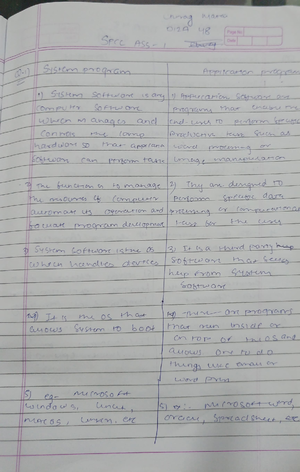 SPCC Ass-1
Q.1) System program
Application program
1) System Software is any
computer software
which manages and
controls the comp
hardware so that application
software can perform task
1) Application software are
programs that enables the
end users to perform specific
productive task such as
word processing or
image manipulation
2) The function is to manage
the resources of computer
automate its operation and
program development
2) They are designed to
perform specific data
processing or computational
task for the user
3) System Software is
which handles devices
3. It is a third party
Software that seeks
help from system
Software
4) It is the OS that
allows system to boot
4) There are programs
that run inside or
on top of the OS and
allows one to do
things like email or
word pro
5) eg:- Microsoft
Windows, Linux,
macos, etc
5) eg:- Microsoft word,
oracy, Spreadsheet, etc